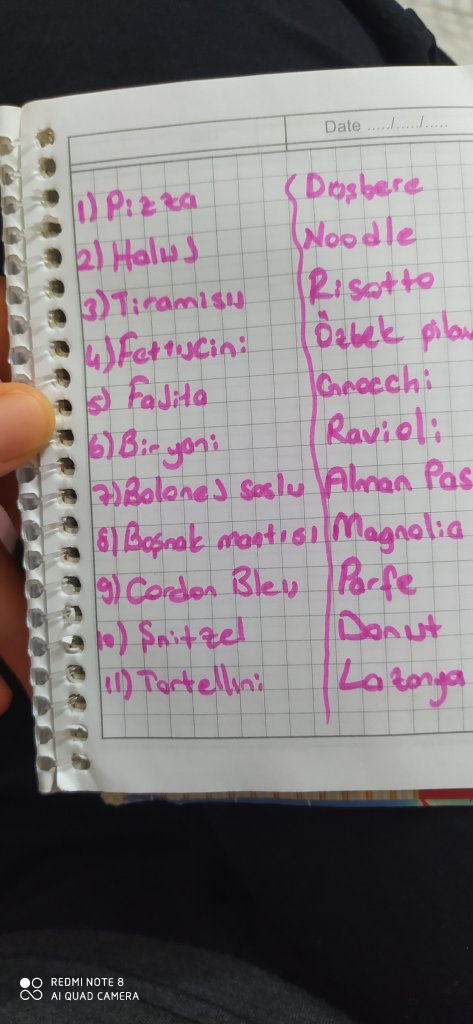 Date ...../...../.....
1) Pizza
2) Haluj
3) Tiramisu
4) Fettucini
5) Fajita
6) Biryani
7) Bolonej soslu
8) Boşnak mantısı
9) Cordon Bleu
10) Şnitzel
11) Tortellini
Düşbere
Noodle
Risotto
Özbek pilav
Gnocchi
Ravioli
Alman Pas
Magnolia
Parfe
Donut
Lazanya
REDMI NOTE 8
AI QUAD CAMERA